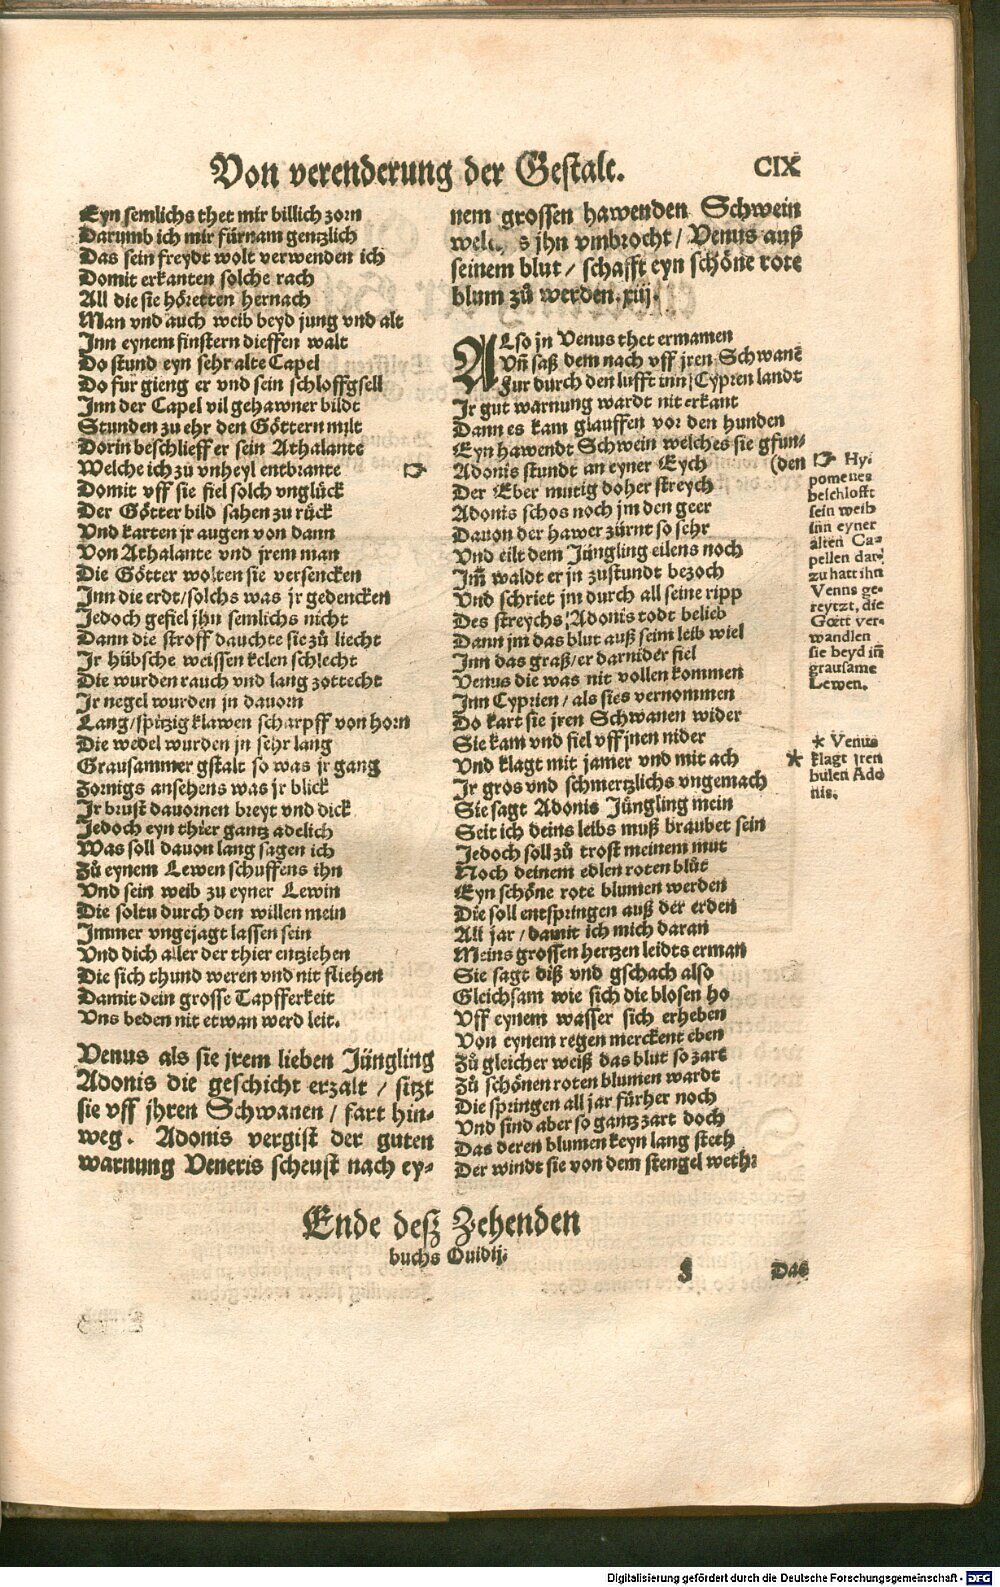 Von verenderung der Gestalt. CIX
Eyn semlichs thet mir billich zorn
Darumb ich mir fürnam gentzlich
Das sein freydt wolt verwenden ich
Domit erkanten solche rach
All die sie höretten hernach
Man vnd auch weib beyd jung vnd alt
Inn eynem finstern dieffen walt
Do stund eyn sehr alte Capel
Do fur gieng er vnd sein schloffgsell
Inn der Capel vil gehawner bildt
Stunden zu ehr den Göttern milt
Dorin beschlieff er sein Athalante
Welche ich zů vnheyl entbrante ☞
Domit vff sie fiel solch vnglück
Der Götter bild sahen zu rück
Vnd karten jr augen von dann
Von Athalante vnd jrem man
Die Götter wolten sie versencken
Inn die erdt/solchs was jr gedencken
Jedoch gefiel jhn semlichs nicht
Dann die stroff dauchte sie zů liecht
Ir hübsche weissen kelen schlecht
Die wurden rauch vnd lang zottecht
Ir negel wurden jn dauorn
Lang/spitzig klawen scharpff von horn
Die wedel wurden jn sehr lang
Grausammer gstalt so was jr gang
Zornigs ansehens was jr blick
Ir brust dauornen breyt vnd dick
Jedoch eyn thier gantz adelich
Was soll dauon lang sagen ich
Zů eynem Lewen schuffens ihn
Vnd sein weib zu eyner Lewin
Die soltu durch den willen mein
Immer vngejagt lassen sein
Vnd dich aller der thier entziehen
Die sich thund weren vnd nit fliehen
Damit dein grosse Tapfferkeit
Vns beden nit etwan werd leit.
Venus als sie jrem lieben Jüngling
Adonis die geschicht erzalt / sitzt
sie vff jhren Schwanen / fart hin-
weg. Adonis vergist der guten
warnung Veneris scheust nach ey-
nem grossen hawenden Schwein
s jhn vmbrocht / Venus auß
seinem blut / schafft eyn schöne rote
blum zů werden. xiij.
ALso jn Venus thet ermamen
Vñ saß dem nach vff jren Schwanẽ
Fur durch den lufft inn Cypren landt
Ir gut warnung wardt nit erkant
Dann es kam glauffen vor den hunden
Eyn hawendt Schwein welches sie gfun-
Adonis stundt an eyner Eych (den
Der Eber mutig doher streych
Adonis schos noch jm den geer
Dauon der hawer zürnt so sehr
Vnd eilt dem Jüngling eilens noch
Im̃ waldt er jn zustundt bezoch
Vnd schriet jm durch all seine ripp
Des streychs Adonis todt belieb
Dann jm das blut auß seim leib wiel
Inn das graß/er darnider fiel
Venus die was nit vollen kommen
Inn Cyprien / als sies vernommen
Do kart sie jren Schwanen wider
Sie kam vnd fiel vff jnen nider
Vnd klagt mit jamer vnd mit ach *
Ir gros vnd schmertzlichs vngemach
Sie sagt Adonis Jüngling mein
Seit ich deins leibs muß braubet sein
Jedoch soll zů trost meinem mut
Noch deinem edlen roten blůt
Eyn schöne rote blumen werden
Die soll entspringen auß der erden
All jar / damit ich mich daran
Meins grossen hertzen leidts erman
Sie sagt diß vnd gschach also
Gleichsam wie sich die blosen ho
Vff eynem wasser sich erheben
Von eynem regen merckent eben
Zů gleicher weiß das blut so zart
Zů schönen roten blumen wardt
Die springen all jar fürher noch
Vnd sind aber so gantz zart doch
Das deren blumen keyn lang steth
Der windt sie von dem stengel weth:
☞ Hy-
pomenes
beschlofft
sein weib
inn eyner
alten Ca-
pellen dar-
zu hatt ihn
Venns ge-
reytzt, die
Gœtt ver-
wandlen
sie beyd iñ
grausame
Lewen.
* Venus
klagt jren
bulen Ado
nis.
Ende desz Zehenden
buchs Ouidij.
Das
Digitalisierung gefördert durch die Deutsche Forschungsgemeinschaft - DFG